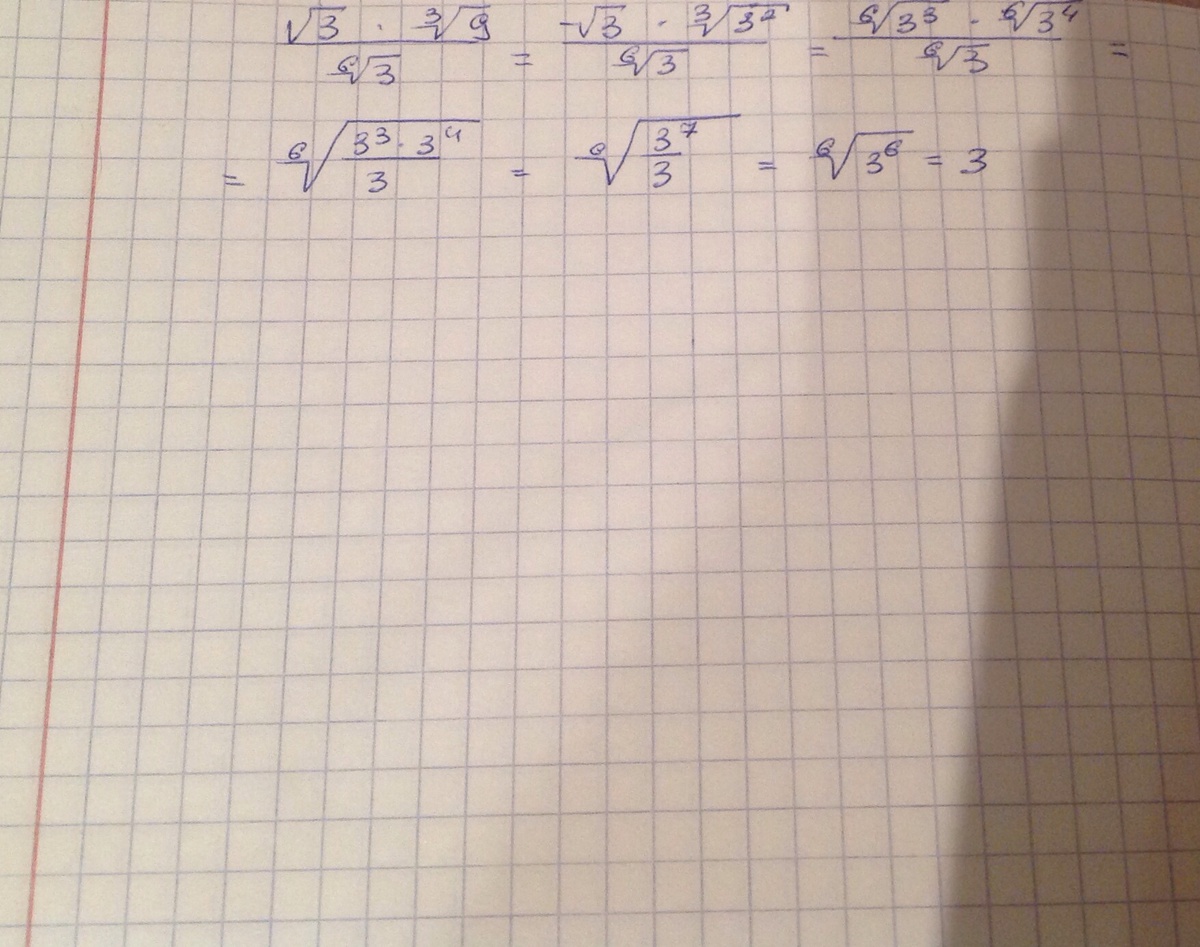 √3 · ∛9 / ⁶√3 = √3 · ∛3² / ⁶√3 = ⁶√3³ · ⁶√3⁴ / ⁶√3 =
= ⁶√(3³ · 3⁴ / 3) = ⁶√(3⁷ / 3) = ⁶√3⁶ = 3